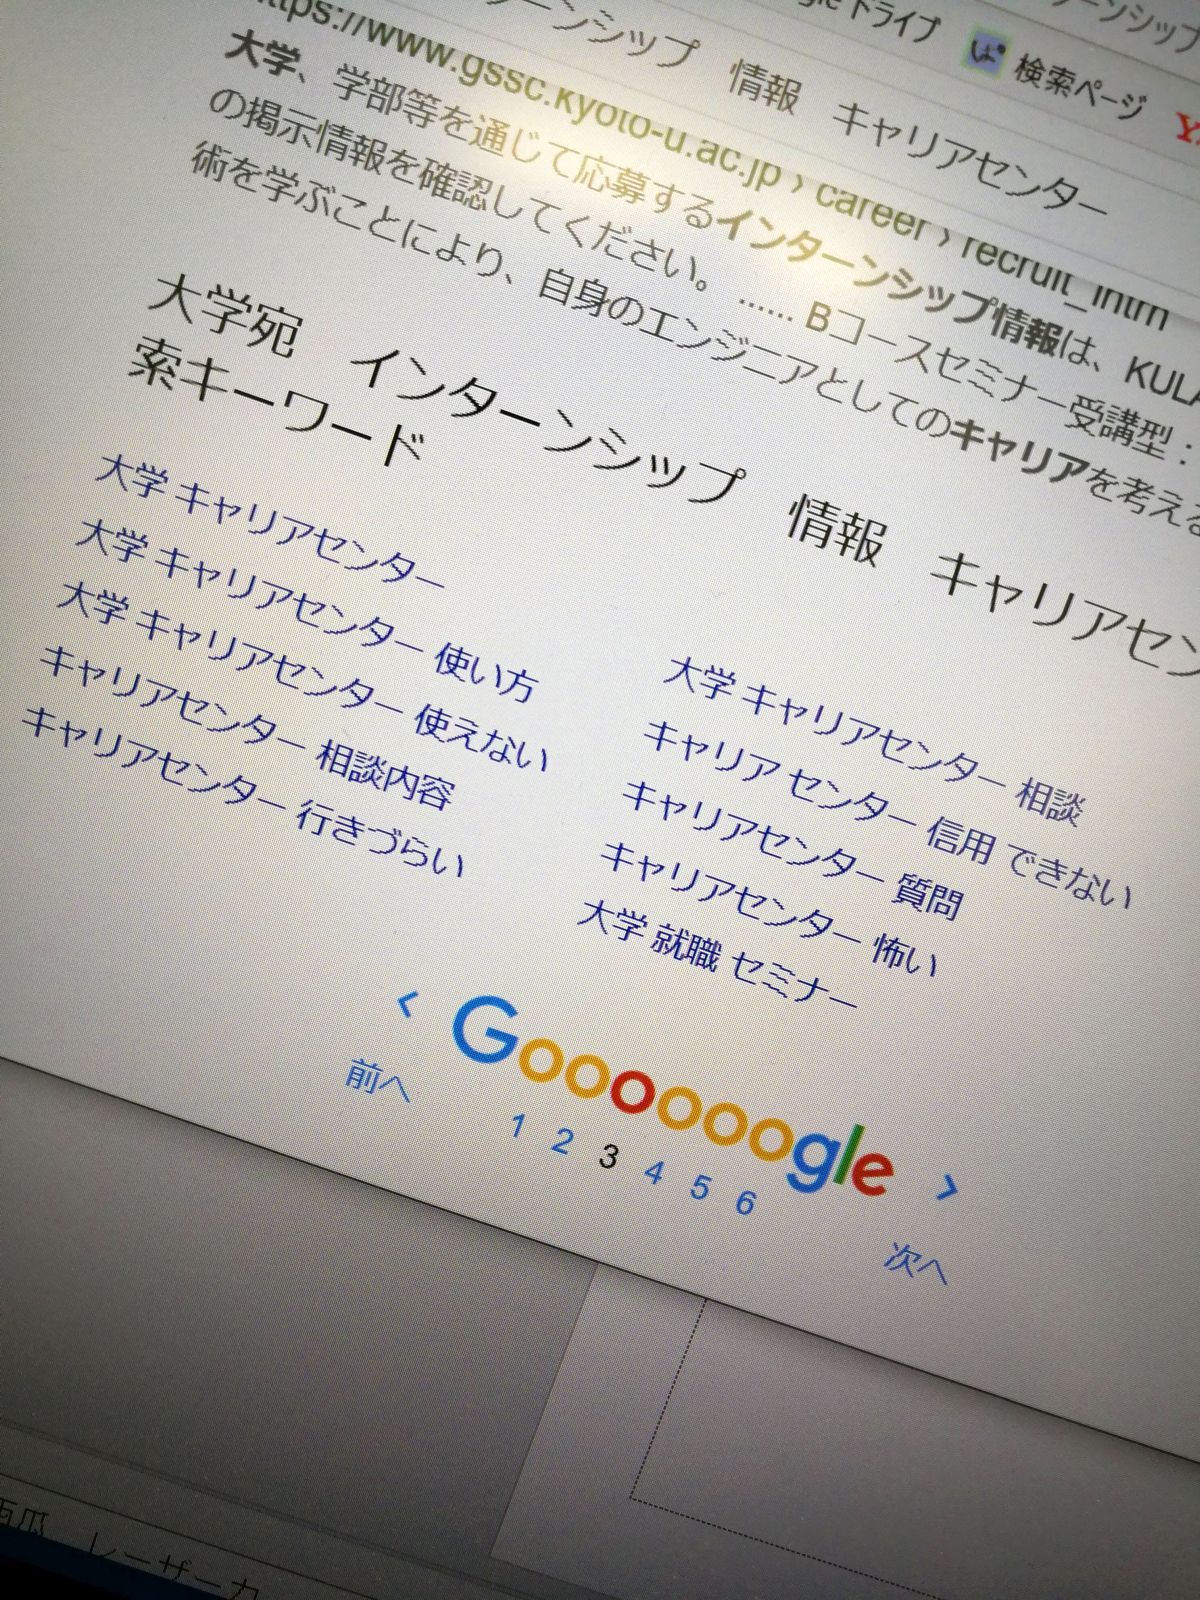 gle ドライブ
ぱ 検索ページ
Y
ーンシップ
ーンシップ 情報 キャリアセンター
https://www.gssc.kyoto-u.ac.jp › career › recruit_intrn
大学、学部等を通じて応募するインターンシップ情報は、KULA
の掲示情報を確認してください。 ...... Bコースセミナー受講型：
術を学ぶことにより、自身のエンジニアとしてのキャリアを考える
大学宛 インターンシップ 情報 キャリアセン
索キーワード
大学 キャリアセンター
大学 キャリアセンター 使い方
大学 キャリアセンター 使えない
キャリアセンター 相談内容
キャリアセンター 行きづらい
大学 キャリアセンター 相談
キャリア センター 信用 できない
キャリアセンター 質問
キャリアセンター 怖い
大学 就職 セミナー
< Goooooogle >
前へ 1 2 3 4 5 6 次へ
レーザーカ